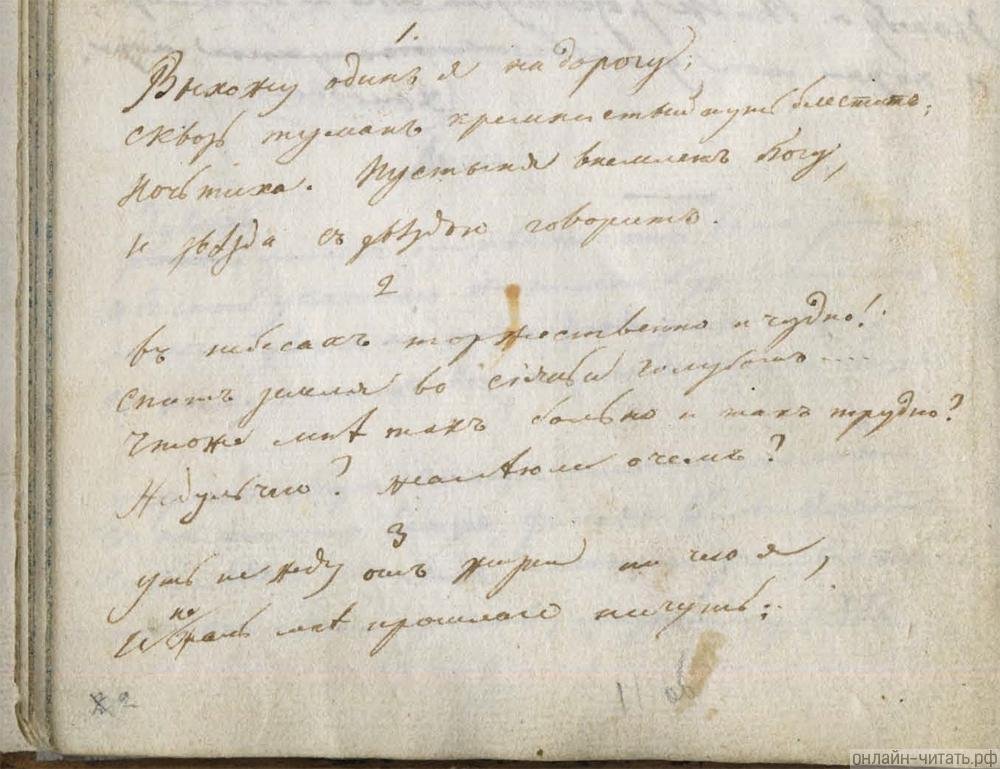 1.
Выхожу одинъ я на дорогу;
сквозь туманъ кремнистый путь блеститъ;
Ночь тиха. Пустыня внемлетъ богу,
и звѣзда съ звѣздою говоритъ.
2
въ небесахъ торжественно и чудно!
спитъ земля въ сіяньи голубомъ....
Чтоже мнѣ такъ больно и такъ трудно?
Жду ль чего? жалѣюли очемъ?
3
ужъ не жду отъ жизни ничего я,
и не жаль мнѣ прошлаго ничуть;
2
онлайн-читать.рф